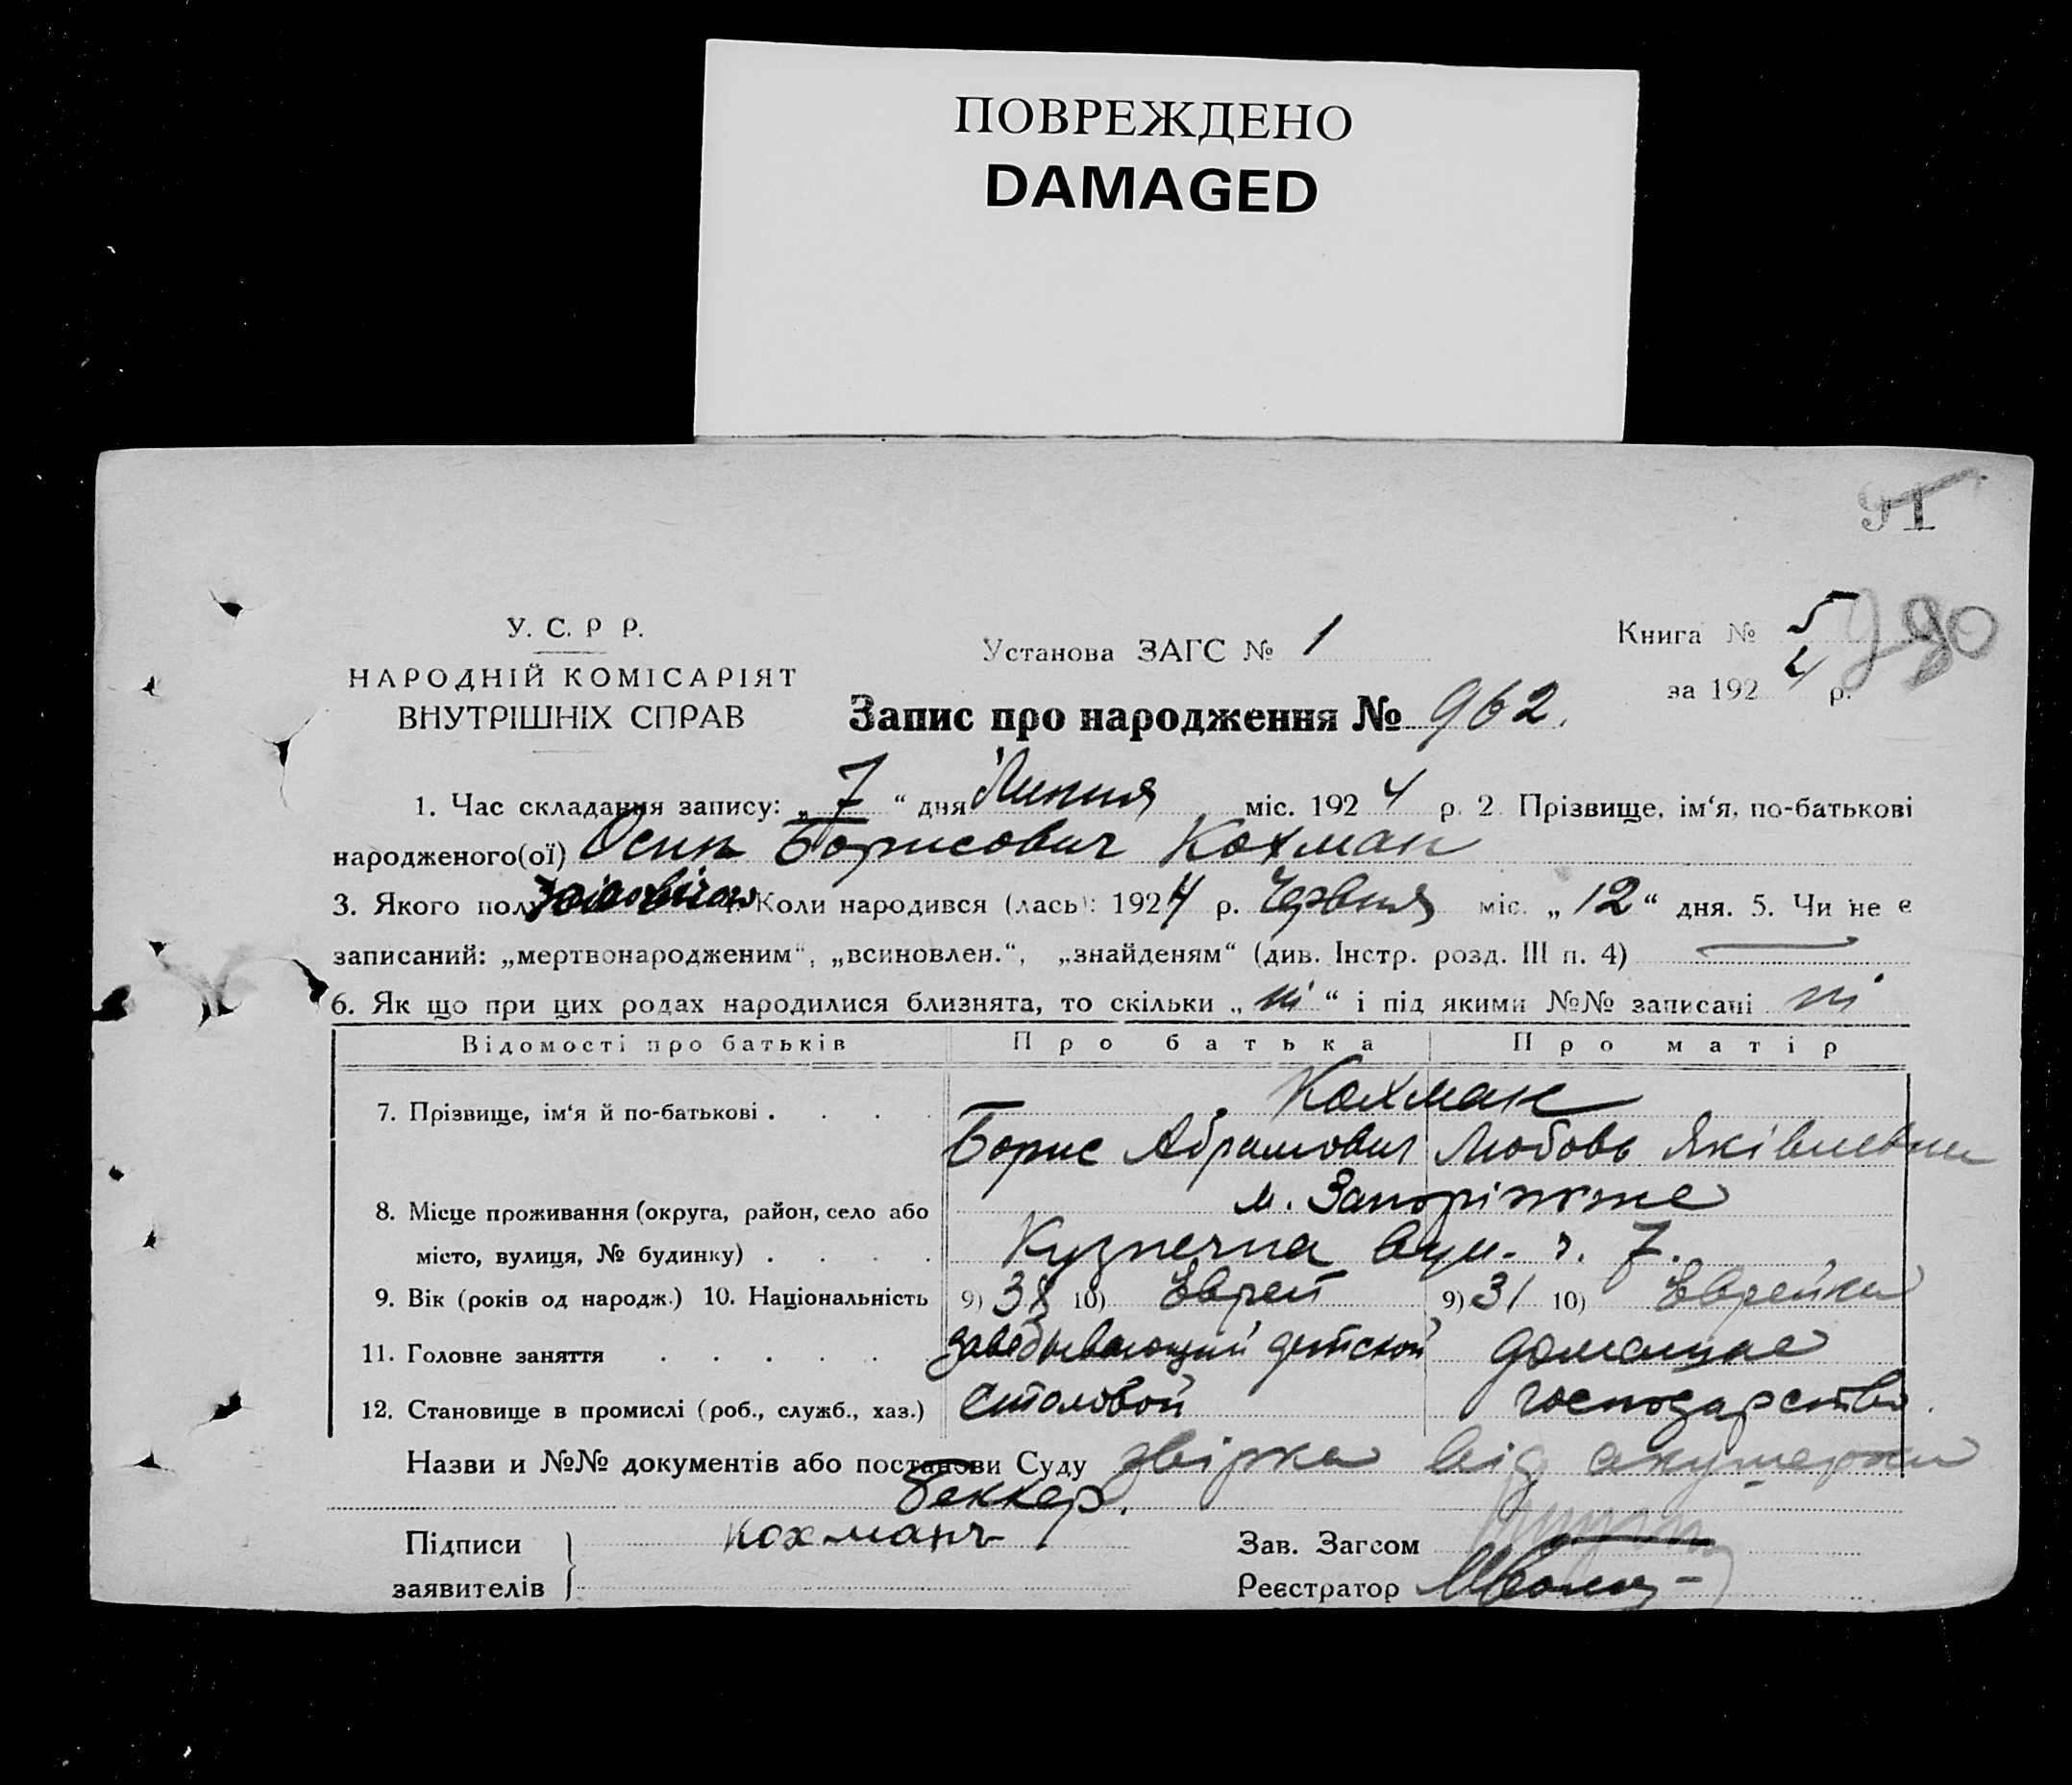 ПОВРЕЖДЕНО
DAMAGED
91
У. С. Р Р.
НАРОДНІЙ КОМІСАРІЯТ
ВНУТРІШНІХ СПРАВ
Установа ЗАГС № 1
Книга № 5
за 1924 р.
Запис про народження № 962.
1. Час складання запису: „7“ дня Липня міс. 1924 р. 2. Прізвище, ім‘я, по-батькові
народженого(ої) Осип Борисович Кохман
3. Якого полу чоловічого 4. Коли народився (лась): 1924 р. Червня міс. „12“ дня. 5. Чи не є
записаний: „мертвонародженим“, „всиновлен.“, „знайденям“ (див. Інстр. розд. III п. 4) —
6. Як що при цих родах народилися близнята, то скільки „ні“ і під якими №№ записані ні
Відомості про батьків Про батька Про матір
Кохман
7. Прізвище, ім‘я й по-батькові . . . .
Борис Абрамович Любовь Яківлевна
8. Місце проживання (округа, район, село або м. Запоріжже
місто, вулиця, № будинку) . . . . Кузнечна вул. ч. 7.
9. Вік (років од народж.) 10. Національність 9) 38 10) Еврей 9) 31 10) Еврейка
11. Головне заняття . . . . . Заведывающий детской домашнє
12. Становище в промислі (роб., служб., хаз.) столовой господарство.
Назви и №№ документів або постанови Суду звірка від акушерки
Беккер.
Підписи Кохманъ Зав. Загсом
заявителів Реєстратор